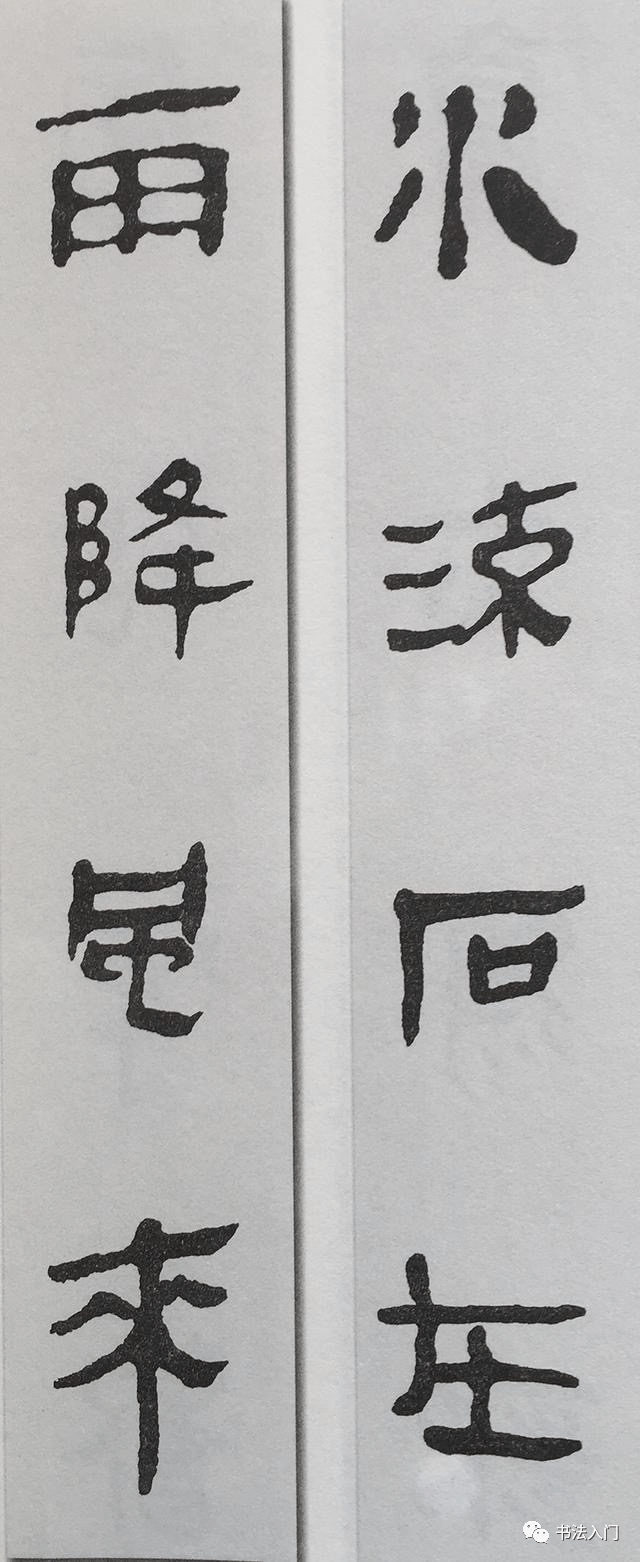 水流石在
雨降来
书法入门